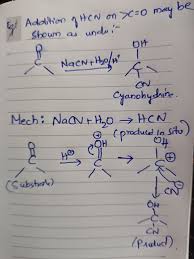 Addition of HCN on >C=O may be
shown as under:-
O
NaCN+H₂O/H⁺
OH
CN
Cyanohydrine.
Mech: NaCN+H₂O → HCN
(produced in situ)
O
H⊕
⊕OH
OH
CN
(Substrate)
OH
CN
(Product)